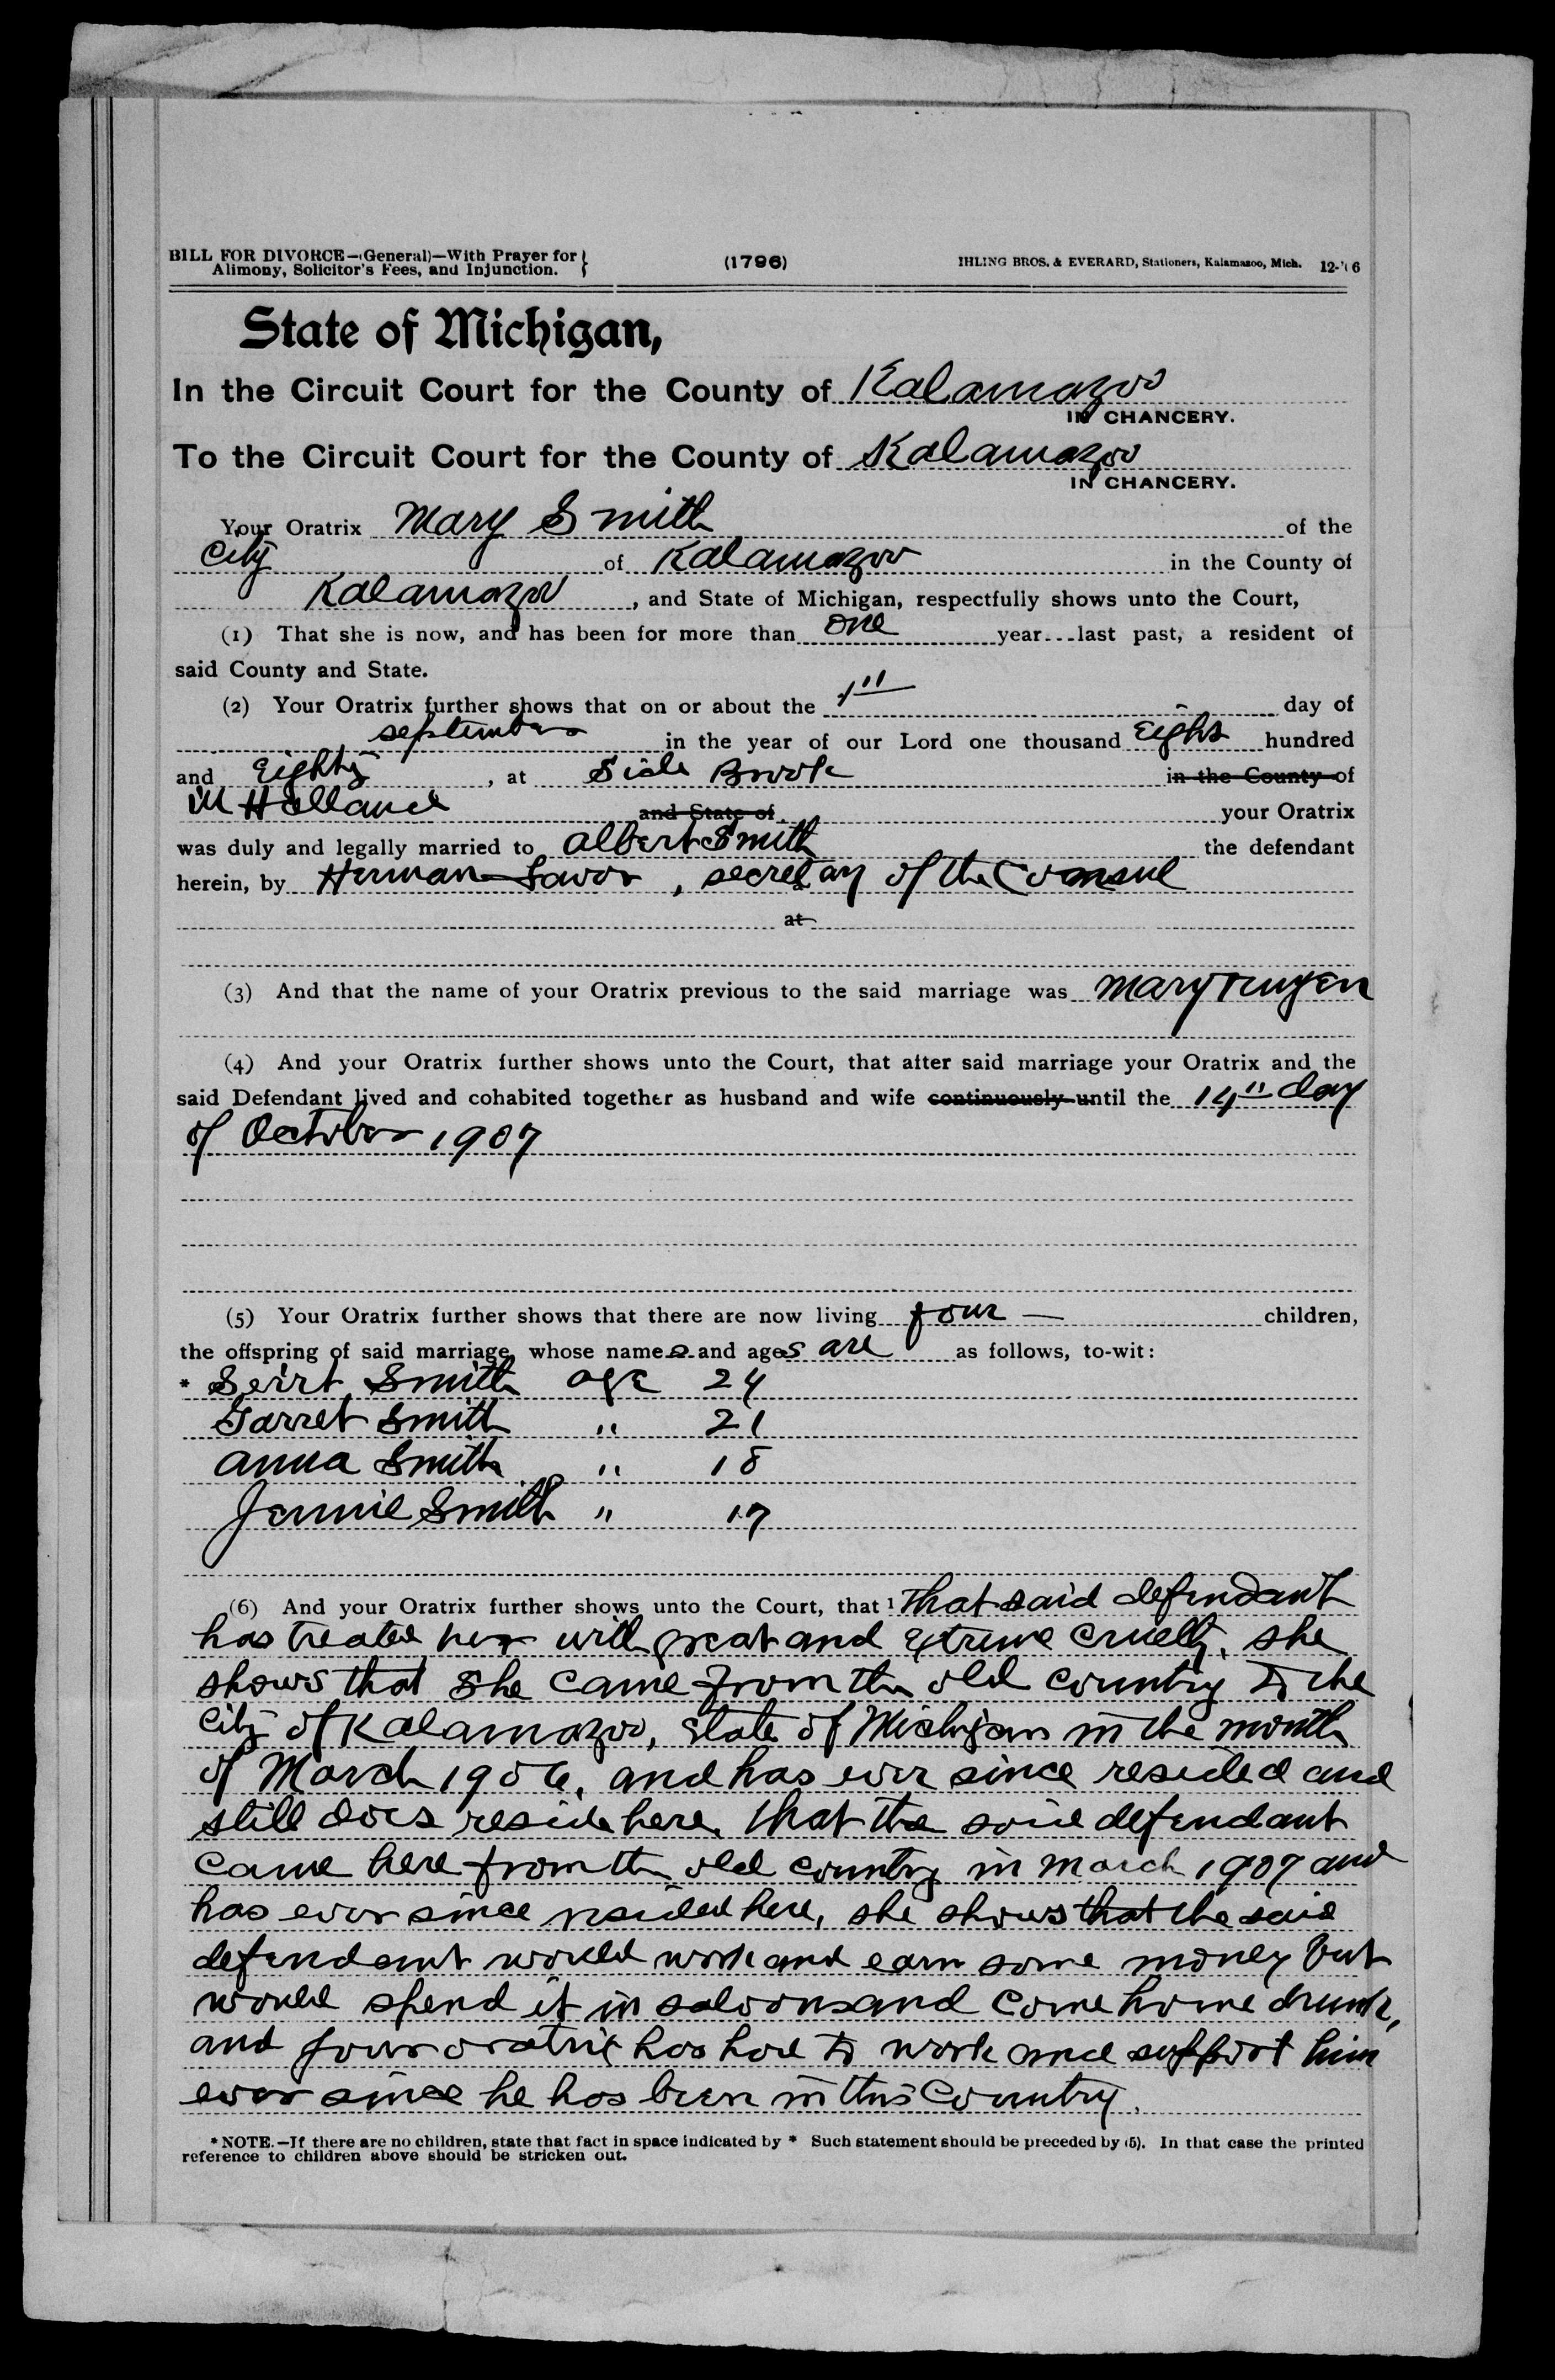 BILL FOR DIVORCE—(General)—With Prayer for } (1796) IHLING BROS. & EVERARD, Stationers, Kalamazoo, Mich. 12-'06
Alimony, Solicitor's Fees, and Injunction.
State of Michigan,
In the Circuit Court for the County of Kalamazoo
IN CHANCERY.
To the Circuit Court for the County of Kalamazoo
IN CHANCERY.
Your Oratrix Mary Smith of the
City of Kalamazoo in the County of
Kalamazoo, and State of Michigan, respectfully shows unto the Court,
(1) That she is now, and has been for more than one year last past, a resident of
said County and State.
(2) Your Oratrix further shows that on or about the 1" day of
september in the year of our Lord one thousand Eight hundred
and Eighty, at Side Brook in the County of
in Holland and State of your Oratrix
was duly and legally married to Albert Smith the defendant
herein, by Herman, secretary of the Consul
at
(3) And that the name of your Oratrix previous to the said marriage was Mary
(4) And your Oratrix further shows unto the Court, that after said marriage your Oratrix and the
said Defendant lived and cohabited together as husband and wife continuously until the 14" day
of October 1907
(5) Your Oratrix further shows that there are now living four — children,
the offspring of said marriage, whose names and ages are as follows, to-wit:
* Smith age 24
Garret Smith " 21
Anna Smith " 18
Jennie Smith " 17
(6) And your Oratrix further shows unto the Court, that 1 that said defendant
has treated her with great and extreme cruelty, she
shows that she came from the old country to the
City of Kalamazoo, state of Michigan in the month
of March 1906, and has ever since resided and
still does reside here, that the said defendant
came here from the old country in march 1907 and
has ever since resided here, she shows that the said
defendant would work and earn some money but
would spend it in saloons and come home drunk,
and your oratrix has had to work and support him
ever since he has been in this Country.
* NOTE.—If there are no children, state that fact in space indicated by * Such statement should be preceded by (5). In that case the printed
reference to children above should be stricken out.